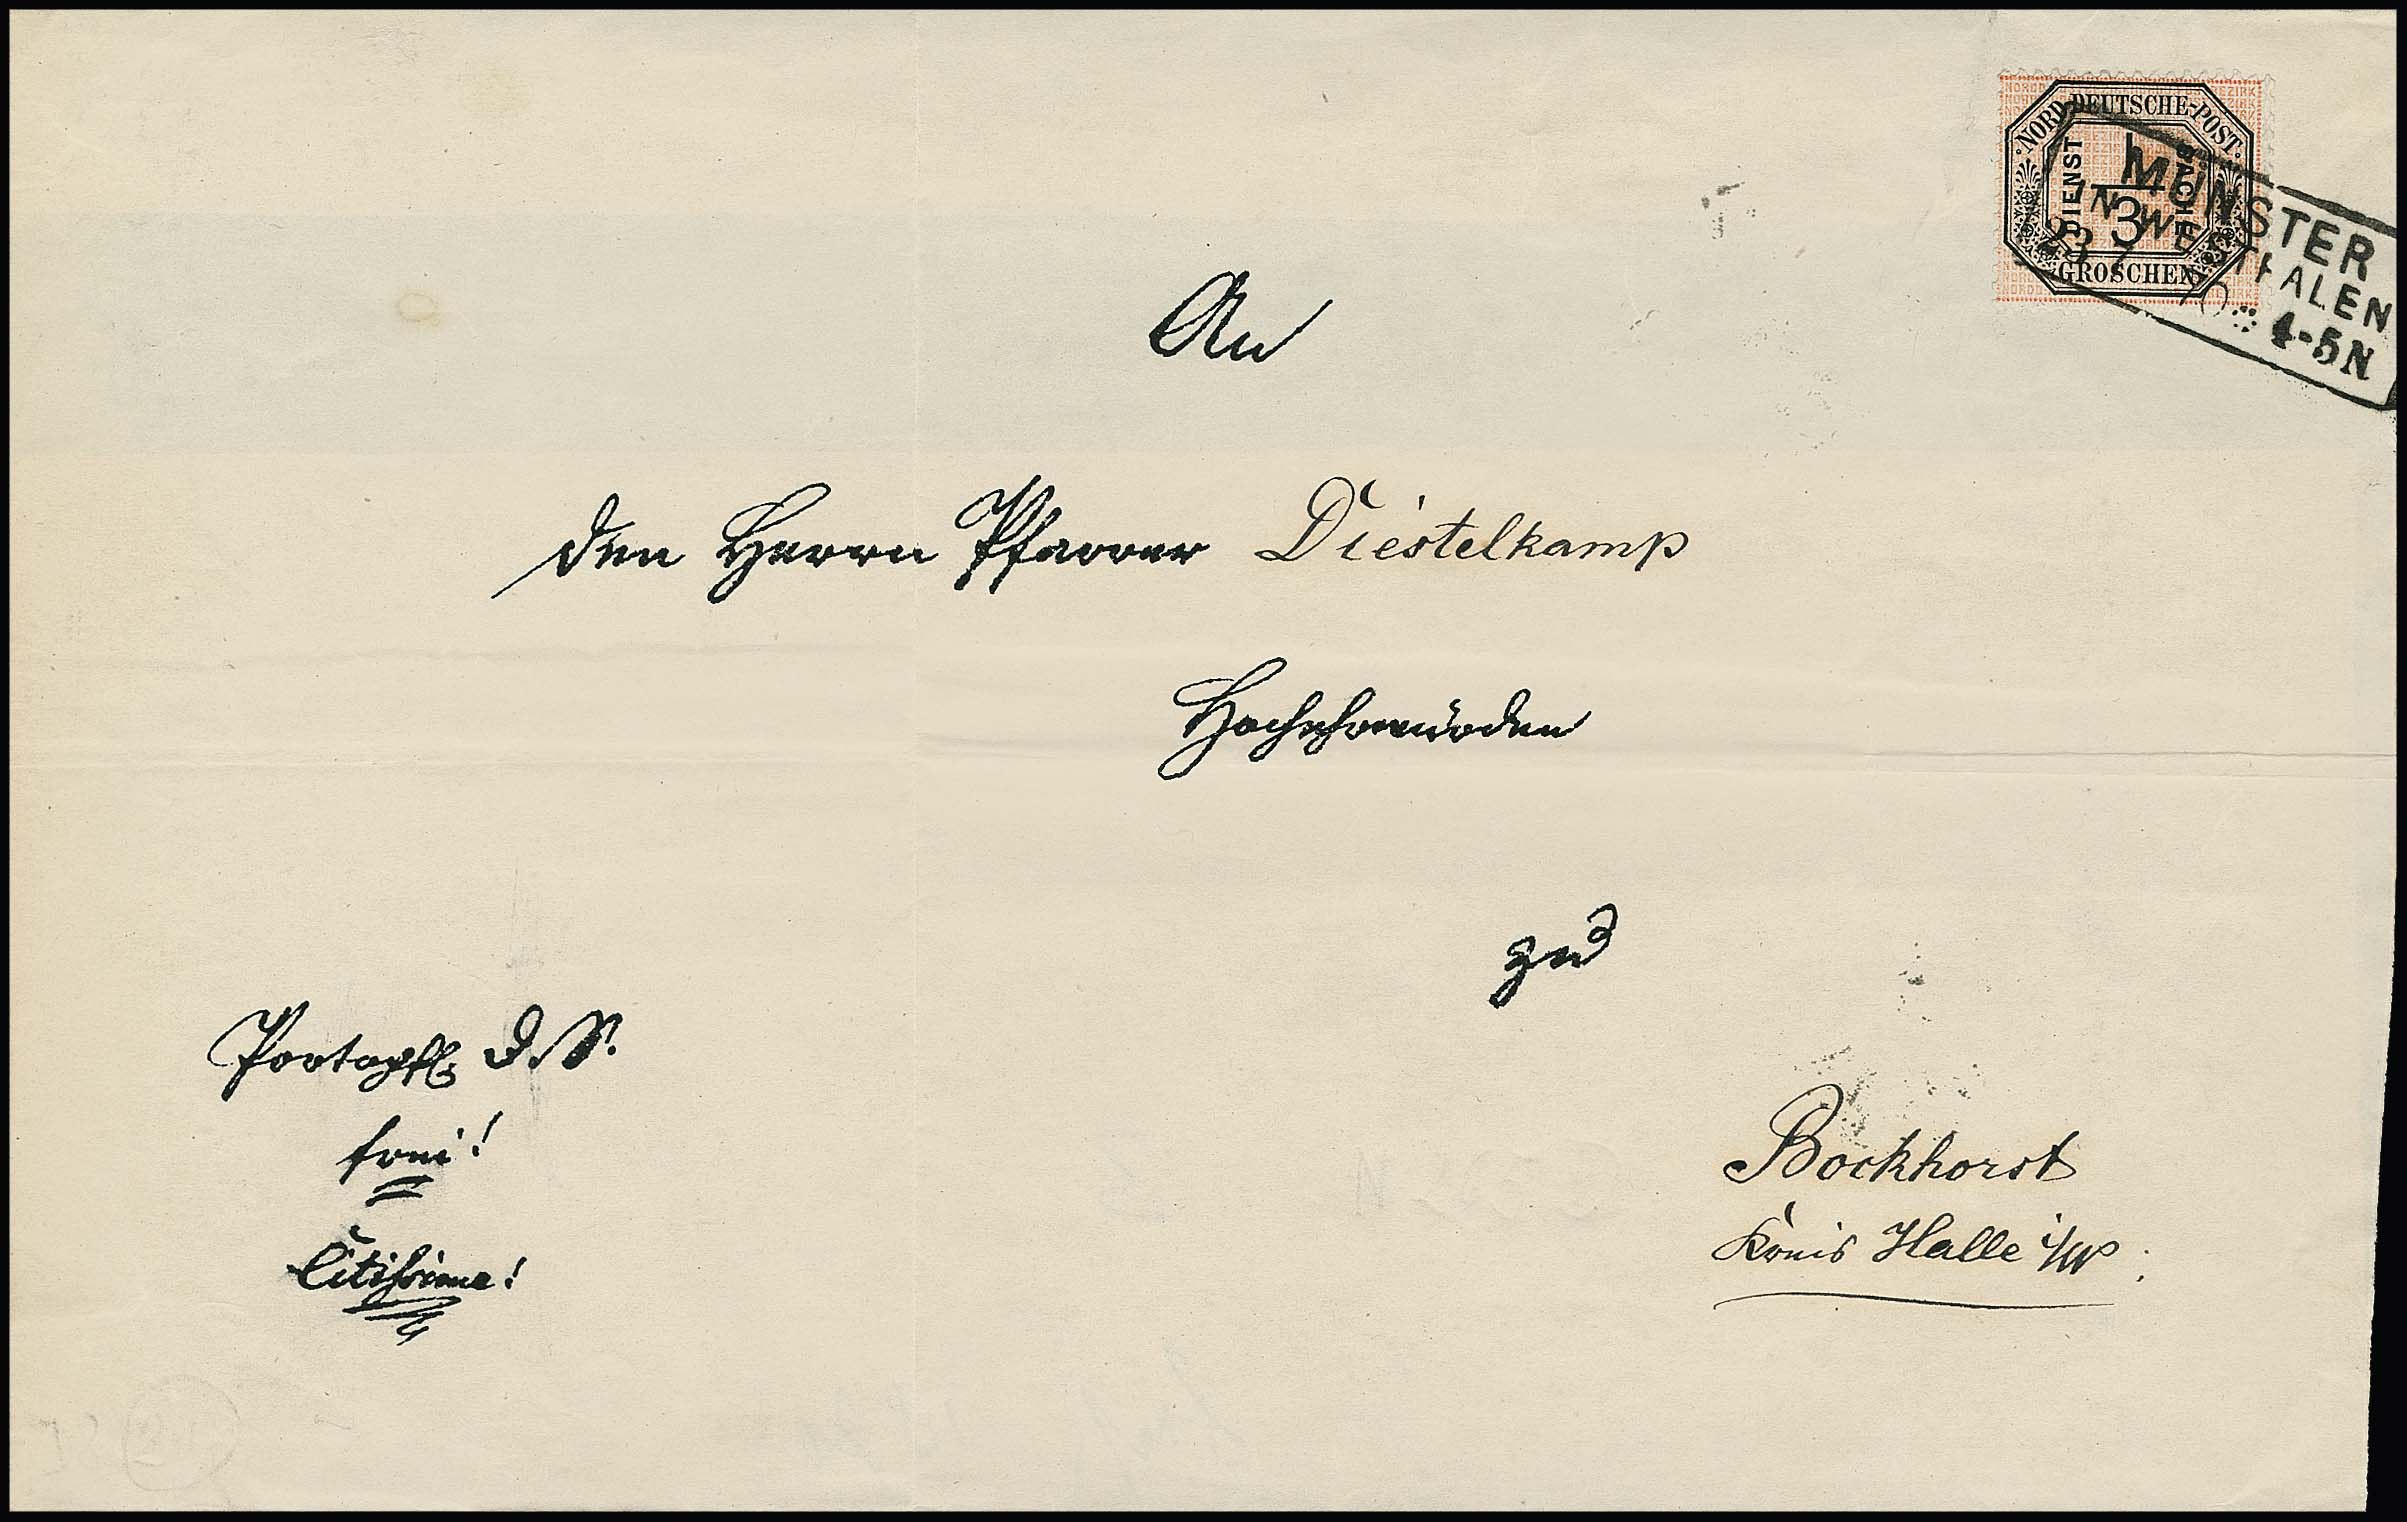 NORD-DEUTSCHE-POST
DIENST SACHE
1/3
GROSCHEN
MÜNSTER
IN WESTFALEN
23 7 70 4-5 N
An
den Herrn Pfarrer Diestelkamp
Hochehrwürden
zu
Portopfl. D.S.
frei!
Citissime!
Bockhorst
Kreis Halle i/W: